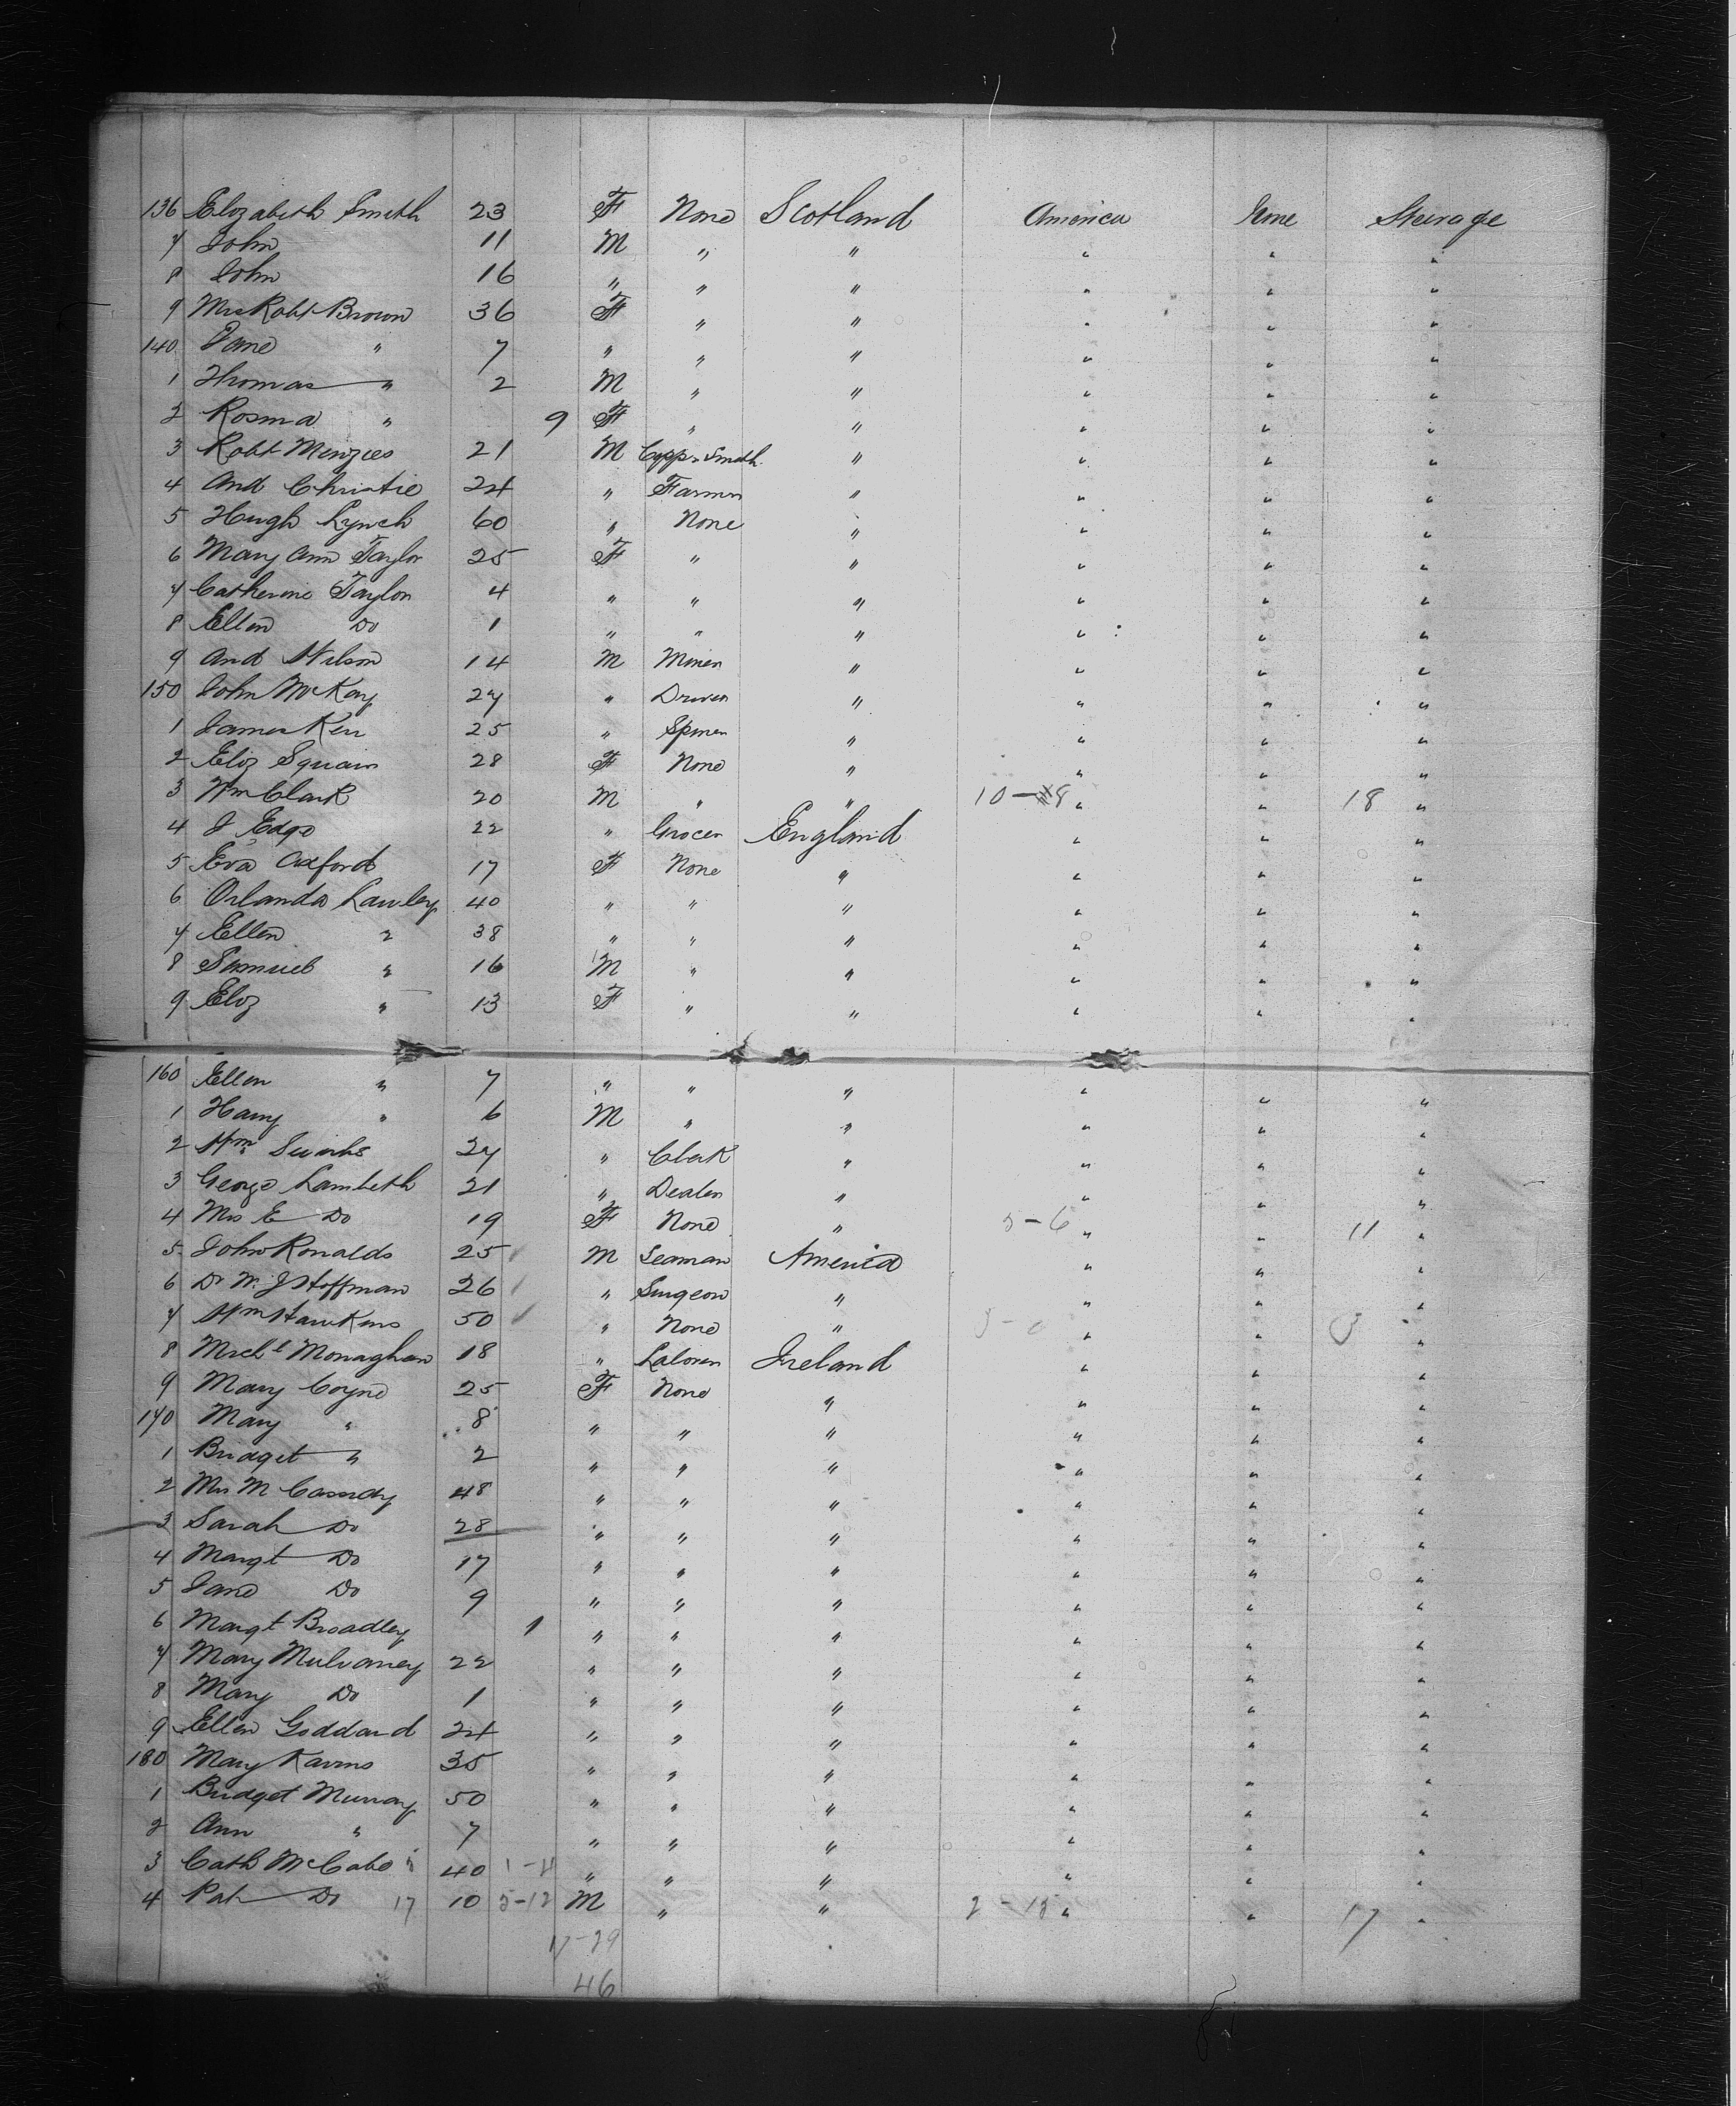 136 Elizabeth Smith 23 F None Scotland America None Steerage
7 John 11 M " " " " "
8 John 16 " " " " " "
9 Mrs Robt Brown 36 F " " " " "
140 Jane " 7 " " " " " "
1 Thomas " 2 M " " " " "
2 Rosina " 9 F " " " " "
3 Robt Menzies 21 M Copp. Smith " " " "
4 And Christie 24 " Farmer " " " "
5 Hugh Lynch 60 " None " " " "
6 Mary Ann Taylor 25 F " " " " "
7 Catherine Taylor 4 " " " " " "
8 Ellen Do 1 " " " " " "
9 And Wilson 14 M Miner " " " "
150 John McKay 27 " Driver " " " "
1 James Kerr 25 " Spiner " " " "
2 Eliz Squair 28 F None " " " "
3 Wm Clark 20 M " " 10-8 " " 18 "
4 J Edge 22 " Grocer England " " "
5 Eva Oxford 17 F None " " " "
6 Orlando Lawley 40 " " " " " "
7 Ellen " 38 " " " " " "
8 Samuel " 16 M " " " " "
9 Eliz " 13 F " " " " "
160 Ellen " 7 " " " " " "
1 Harry " 6 M " " " " "
2 Wm 27 " Clerk " " " "
3 George Lambeth 21 " Dealer " " " "
4 Mrs E Do 19 F None " 5-6 " " 11 "
5 John Ronalds 25 M Seaman America " " "
6 Dr W. J Hoffman 26 " Surgeon " " " "
7 Wm Hawkins 50 " None " 3-0 " " 3 "
8 Michl Monaghan 18 " Laborer Ireland " " "
9 Mary Coyne 25 F None " " " "
170 Mary " 8 " " " " " "
1 Bridget " 2 " " " " " "
2 Mrs M Cassidy 48 " " " " " "
3 Sarah Do 28 " " " " " "
4 Margt Do 17 " " " " " "
5 Jane Do 9 " " " " " "
6 Margt Broadley 1 " " " " " "
7 Mary Mulvaney 22 " " " " " "
8 Mary Do 1 " " " " " "
9 Ellen Goddard 24 " " " " " "
180 Mary Karins 35 " " " " " "
1 Bridget Murray 50 " " " " " "
2 Ann " 7 " " " " " "
3 Cath McCabe 40 " " " " " "
4 Pat Do 17 10 5-12 M " " 2-15 " " 17 "
17-29
46